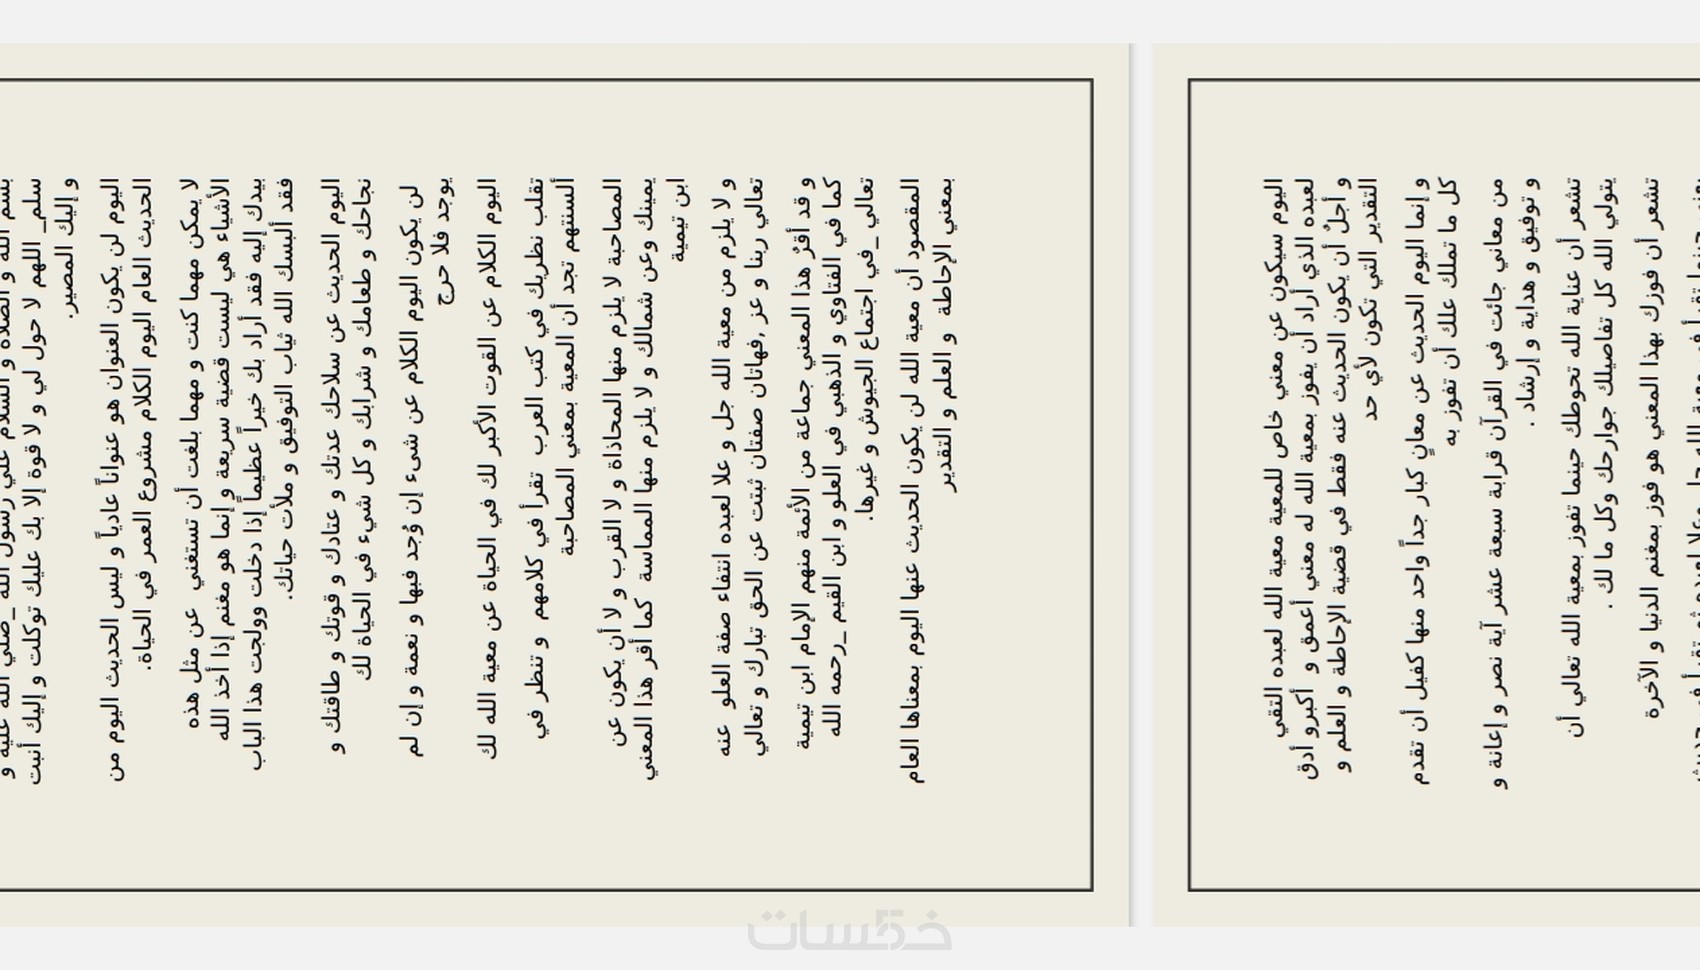 بسم الله و الصلاة و السلام علي رسول الله _صلي الله عليه و
سلم_ اللهم لا حول لي و لا قوة إلا بك عليك توكلت و إليك أنبت
و إليك المصير.
اليوم لن يكون العنوان هو عنواناً عادياً و ليس الحديث اليوم من
الحديث العام اليوم الكلام مشروع العمر في الحياة.
لا يمكن مهما كنت و مهما بلغت أن تستغني عن مثل هذه
الأشياء هي ليست قضية سريعة و إنما هو مغنم إذا أخذ الله
بيدك إليه فقد أراد بك خيراً عظيماً إذا دخلت وولجت هذا الباب
فقد ألبسك الله ثياب التوفيق و ملأت حياتك.
اليوم الحديث عن سلاحك عدتك و عتادك و قوتك و طاقتك و
نجاحك و طعامك و شرابك و كل شيء في الحياة لك
لن يكون اليوم الكلام عن شىء إن وُجد فبها و نعمة و إن لم
يوجد فلا حرج
اليوم الكلام عن القوت الأكبر لك في الحياة عن معية الله لك
تقلب نظريك في كتب العرب تقرأ في كلامهم و تنظر في
ألسنتهم تجد أن المعية بمعني المصاحبة
المصاحبة لا يلزم منها المحاذاة و لا القرب و لا أن يكون عن
يمينك وعن شمالك و لا يلزم منها المماسة كما أقر هذا المعني
ابن تيمية
و لا يلزم من معية الله جل و علا لعبده انتفاء صفة العلو عنه
تعالي ربنا و عز ,فهاتان صفتان ثبتت عن الحق تبارك و تعالي
و قد أقرُ هذا المعني جماعة من الأئمة منهم الإمام ابن تيمية
كما في الفتاوي و الذهبي في العلو و ابن القيم _رحمه الله
تعالي _في اجتماع الجيوش و غيرها.
المقصود أن معية الله لن يكون الحديث عنها اليوم بمعناها العام
بمعني الإحاطة و العلم و التقدير
اليوم سيكون عن معني خاص للمعية معية الله لعبده التقي
لعبده الذي أراد أن يفوز بمعية الله له معني أعمق و أكبرو أدق
و أجلٌ أن يكون الحديث عنه فقط في قضية الإحاطة و العلم و
التقدير التي تكون لأي حد
و إنما اليوم الحديث عن معانٍ كبار جداً واحد منها كفيل أن تقدم
كل ما تملك علك أن تفوز به
من معاني جائت في القرآن قرابة سبعة عشر آية نصر و إعانة و
و توفيق و هداية و إرشاد .
تشعر أن عناية الله تحوطك حينما تفوز بمعية الله تعالي أن
يتولي الله كل تفاصيلك جوارحك وكل ما لك .
تشعر أن فوزك بهذا المعني هو فوز بمغنم الدنيا و الآخرة
خمسات